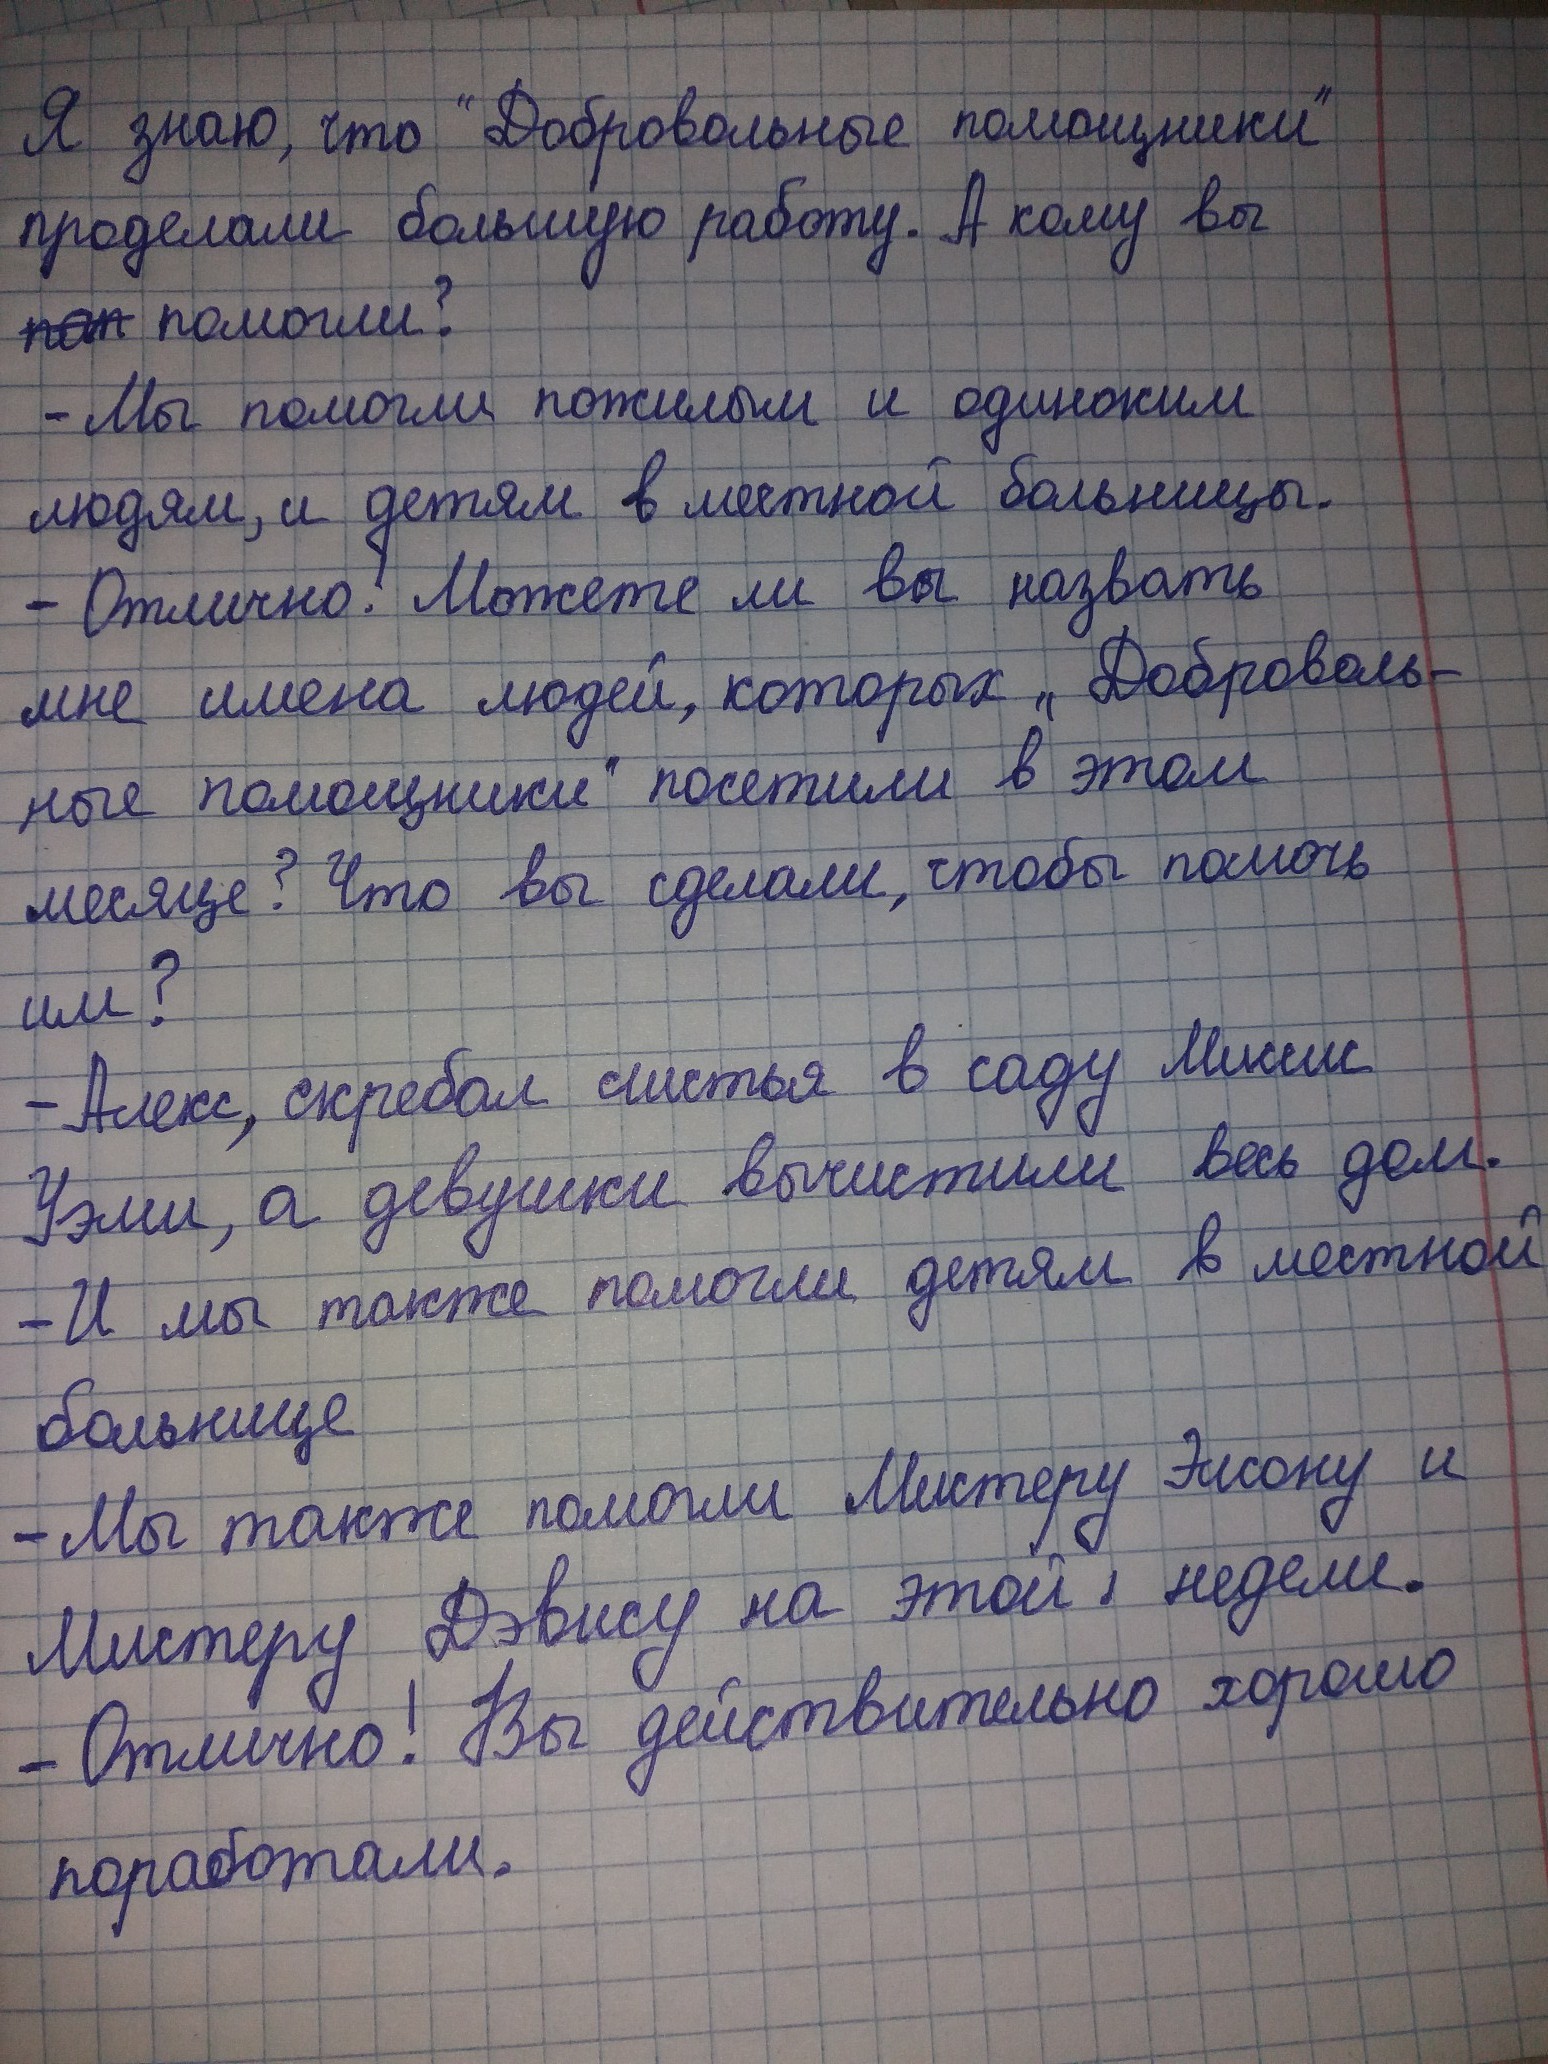 Я знаю, что "Добровольные помощники"
проделали большую работу. А кому вы
помогли?
- Мы помогли пожилым и одиноким
людям, и детям в местной больницы.
- Отлично! Можете ли вы назвать
мне имена людей, которых „Доброволь-
ные помощники" посетили в этом
месяце? Что вы сделали, чтобы помочь
им?
- Алекс, скребал листья в саду Миссис
Уэли, а девушки вычистили весь дом.
- И мы также помогли детям в местной
больнице
- Мы также помогли Мистеру Элсону и
Мистеру Дэвису на этой недели.
- Отлично! Вы действительно хорошо
поработали.